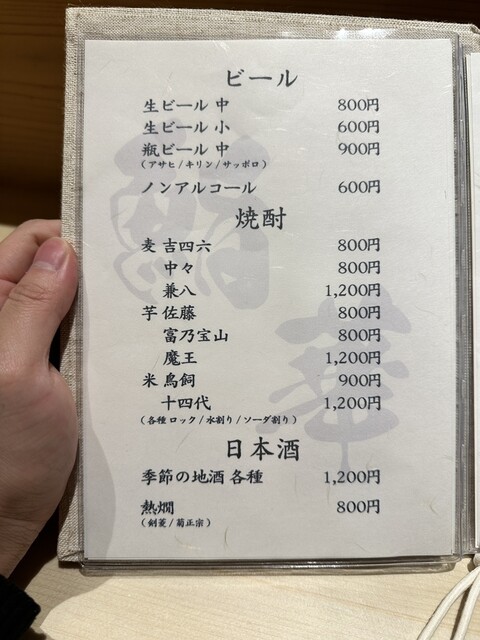 ビール
生ビール 中 800円
生ビール 小 600円
瓶ビール 中 900円
(アサヒ/キリン/サッポロ)
ノンアルコール 600円
焼酎
麦 吉四六 800円
中々 800円
兼八 1,200円
芋 佐藤 800円
富乃宝山 800円
魔王 1,200円
米 鳥飼 900円
十四代 1,200円
(各種 ロック/水割り/ソーダ割り)
日本酒
季節の地酒 各種 1,200円
熱燗 800円
(剣菱/菊正宗)